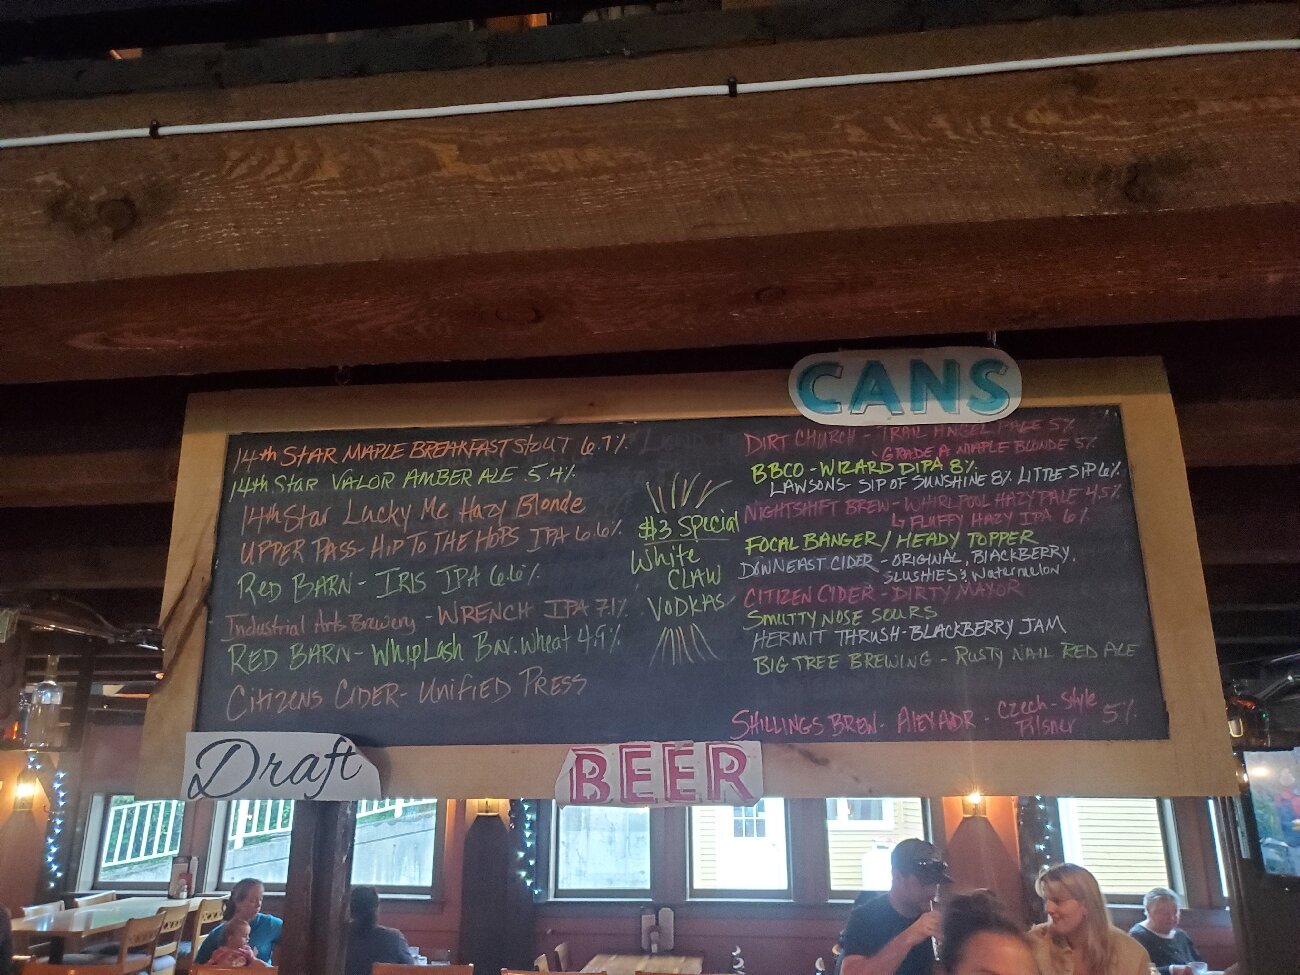 CANS
14th STAR MAPLE BREAKFAST STOUT 6.7%
14th Star VALOR AMBER ALE 5.4%
14th Star Lucky Me Hazy Blonde
UPPER PASS- HIP TO THE HOPS IPA 6.6%
RED BARN- IRIS IPA 6.6%
Industrial Arts Brewery - WRENCH IPA 7.1%
RED BARN- WhipLash Bav. Wheat 4.9%
CITIZENS CIDER- UNIFIED PRESS
$3 Special
White
CLAW
VODKAS
DIRT CHURCH - TRAIL ANGEL 5%
GRADE A MAPLE BLONDE 5%
BBCO - WIZARD DIPA 8%
LAWSONS- SIP OF SUNSHINE 8% LITTLE SIP 6%
NIGHTSHIFT BREW - WHIRLPOOL HAZY PALE 4.5%
↳ FLUFFY HAZY IPA 6%
FOCAL BANGER / HEADY TOPPER
DOWNEAST CIDER - ORIGINAL, BLACKBERRY,
SLUSHIES & Watermelon
CITIZEN CIDER - DIRTY MAYOR
SMUTTY NOSE SOURS
HERMIT THRUSH- BLACKBERRY JAM
BIG TREE BREWING - RUSTY NAIL RED ALE
SHILLINGS BREW- ALEXANDR - Czech-Style
Pilsner 5%
Draft
BEER